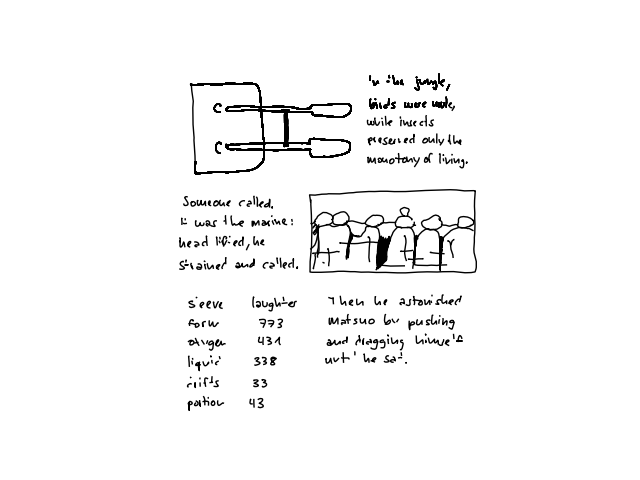 C
C
In the jungle,
birds were mute,
while insects
preserved only the
monotony of living.
Someone called.
It was the marine:
head lifted, he
strained and called.
sleeve laughter
form 773
oxygen 431
liquid 338
drifts 33
portion 43
Then he astonished
Matsuo by pushing
and dragging himself
until he sat.